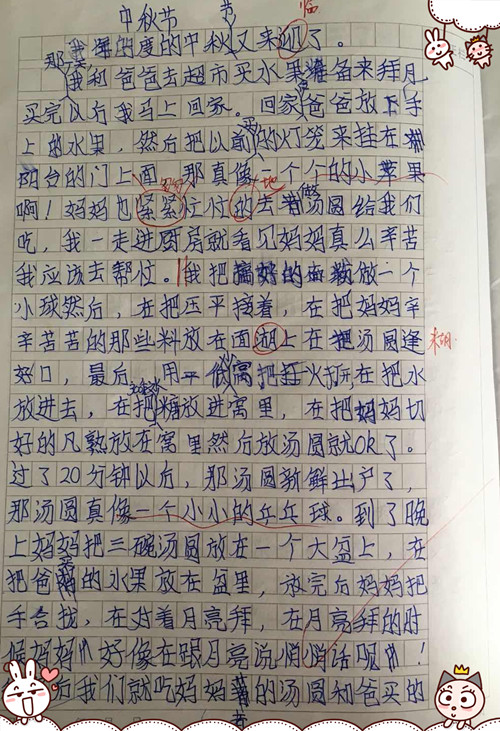 中秋节 节 临
我渴的度的中秋又来迎了。
那天我和爸爸去超市买水果准备来拜月
买完以后我马上回家。回家爸爸放下手
上的水果,然后把以前买的灯笼来挂在
阳台的门上面 那真像一个个的小苹果
啊!妈妈也紧紧忙忙的去着汤圆给我们
匆匆 地 做
吃,我一走进厨房就看见妈妈真么辛苦
我应该去帮忙。我把搞好的面粉做一个
小球然后,在把压平接着,在把妈妈辛
辛苦苦的那些料放在面湖上在把汤圆逢
来胡
好口,最后,用一 窝把打火打开,在把水
放进去,在把糖放进窝里,在把妈妈切
好的 放在窝里然后放汤圆就OK了。
过了20分钟以后,那汤圆新鲜出户了,
那汤圆真像一个小小的乒乓球。到了晚
上妈妈把三碗汤圆放在一个大盆上,在
把爸买的水果放在盆里,放完后妈妈把
手合找,在对着月亮拜,在月亮拜的时
候妈妈《好像在跟月亮说悄悄话呢》!
后我们就吃妈妈 的汤圆和爸买的